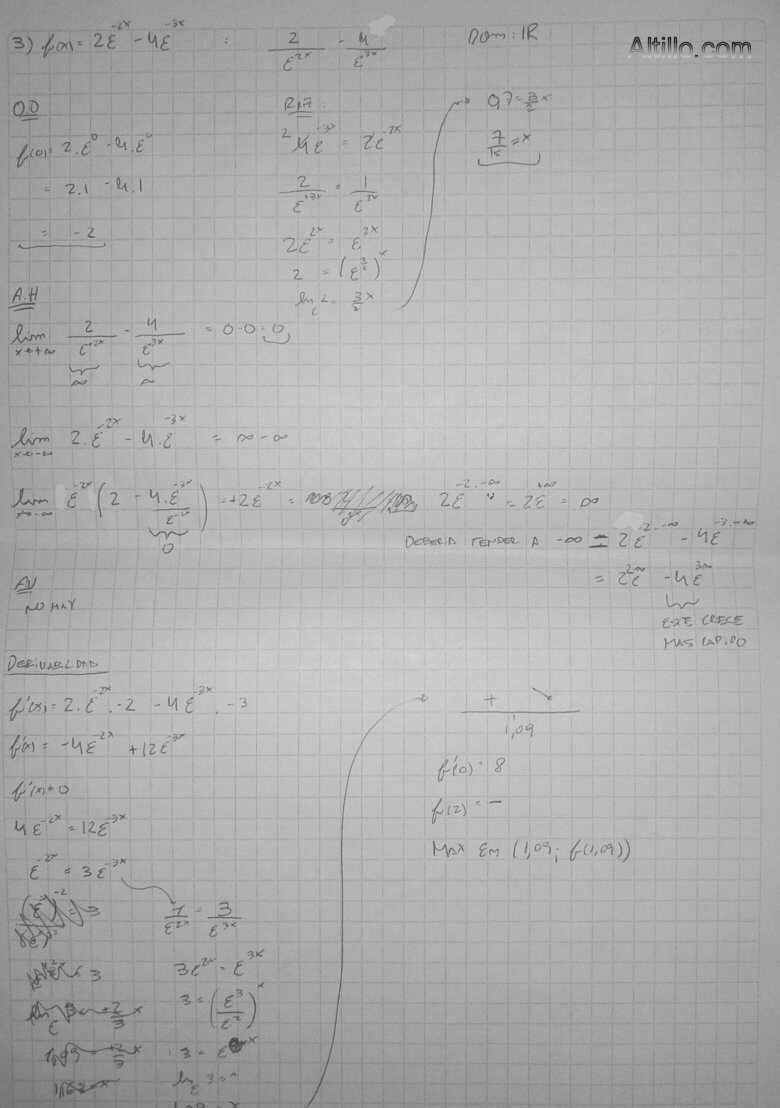 3) f(x) = 2e^-2x - 4e^-3x = 2/e^2x - 4/e^3x Dom: IR
Altillo.com
O.O
f(0) = 2.e^0 - 4.e^0
= 2.1 - 4.1
= -2
4e^-3x = 2e^-2x
2/e^+3x = 1/e^2x
2e^2x = e^3x
2 = (e^3/2)^x
ln_e 2 = 3/2 x
0,7 = 3/2 x
7/15 = x
A.H
lim x→+∞ 2/e^+2x - 4/e^3x = 0-0=0
∞ ∞
lim x→-∞ 2.e^-2x - 4.e^-3x = ∞-∞
lim x→-∞ e^-2x (2 - 4.e^-3x/e^-2x) = +2e^-2x = 2e^-2.-∞ = 2e^+∞ = ∞
0
DEBERIA TENDER A -∞ = 2e^-2.-∞ - 4e^-3.-∞
= 2e^2∞ - 4e^3∞
ESTE CRECE
MAS RAPIDO
AV
NO HAY
DERIVABILIDAD
f'(x) = 2.e^-2x.-2 - 4e^-3x.-3
f'(x) = -4e^-2x + 12e^-3x
f'(x) = 0
4e^-2x = 12e^-3x
e^-2x = 3e^-3x
1/e^2x = 3/e^3x
3e^2x = e^3x
3 = (e^3/e^2)^x
3 = e^x
ln_e 3 = x
+
1,09
f'(0) = 8
f'(2) = -
MAX EN (1,09; f(1,09))